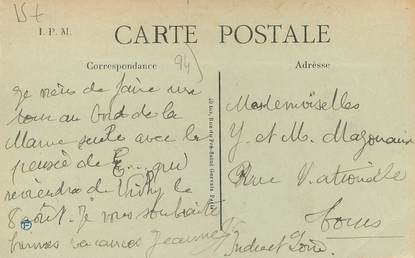 15t
I. P. M.
CARTE POSTALE
Correspondance
94
Adresse
Je viens de faire un
tour au bord de la
Marne seule avec la
pensée de E... qui
reviendra de Vichy le
8 août. Je vous souhaite
bonnes vacances Jeanne
Mesdemoiselles
Y. et M.
Rue Nationale
Tours
Indre et Loire